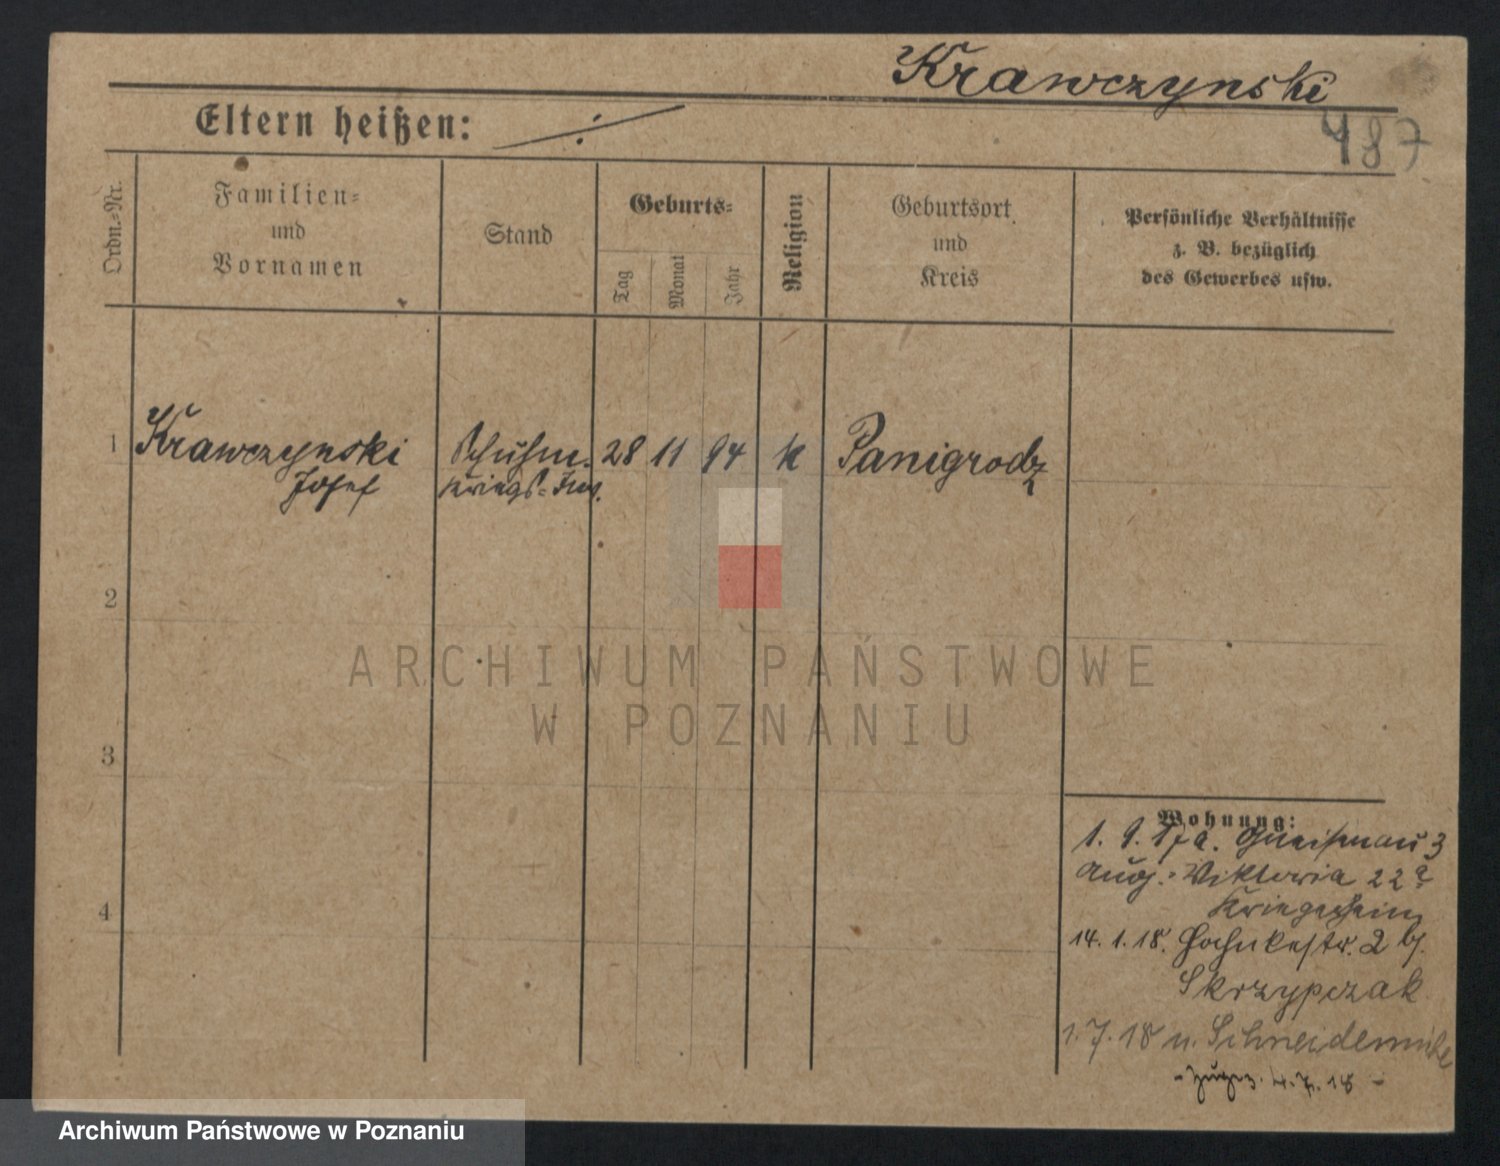 Krawczynski
487
Eltern heißen: ·/·
Ordn.-Nr.
Familien-
und
Vornamen
Stand
Geburts-
Tag
Monat
Jahr
Religion
Geburtsort
und
Kreis
Persönliche Verhältnisse
z. B. bezüglich
des Gewerbes usw.
1 Krawczynski Schuhm. 28 11 94 k Panigrodz
Josef Kriegs-Inv.
2
ARCHIWUM PAŃSTWOWE
W POZNANIU
3
4
Wohnung:
1. 9. 17 a. Gneisenau 3
Aug. Viktoria 22a
Kriegerheim
14. 1. 18. 2 b/
Skrzypczak
1. 7. 18 n. Schneidemühle
4. 7. 18 -
Archiwum Państwowe w Poznaniu